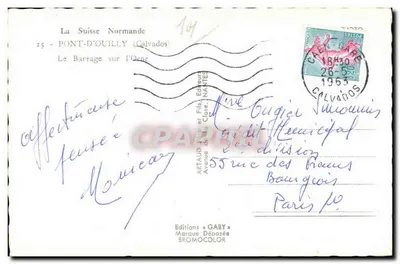 La Suisse Normande
25 - PONT-D'OUILLY (Calvados)
Le Barrage sur l'Orne
CAEN GARE
18H30
26-6
1963
CALVADOS
affectueuse
pensée
Monican
Mme Ougier
Crédit Municipal
division
55 rue des Francs
Bourgeois
Paris
Editions "GABY"
Marque Déposée
BROMOCOLOR